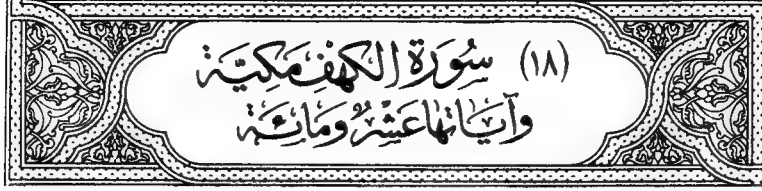 (١٨) سُورَة الكهفِ مَكِيَّة
وآيَاتهَا عَشْرٌ وَمَائِة